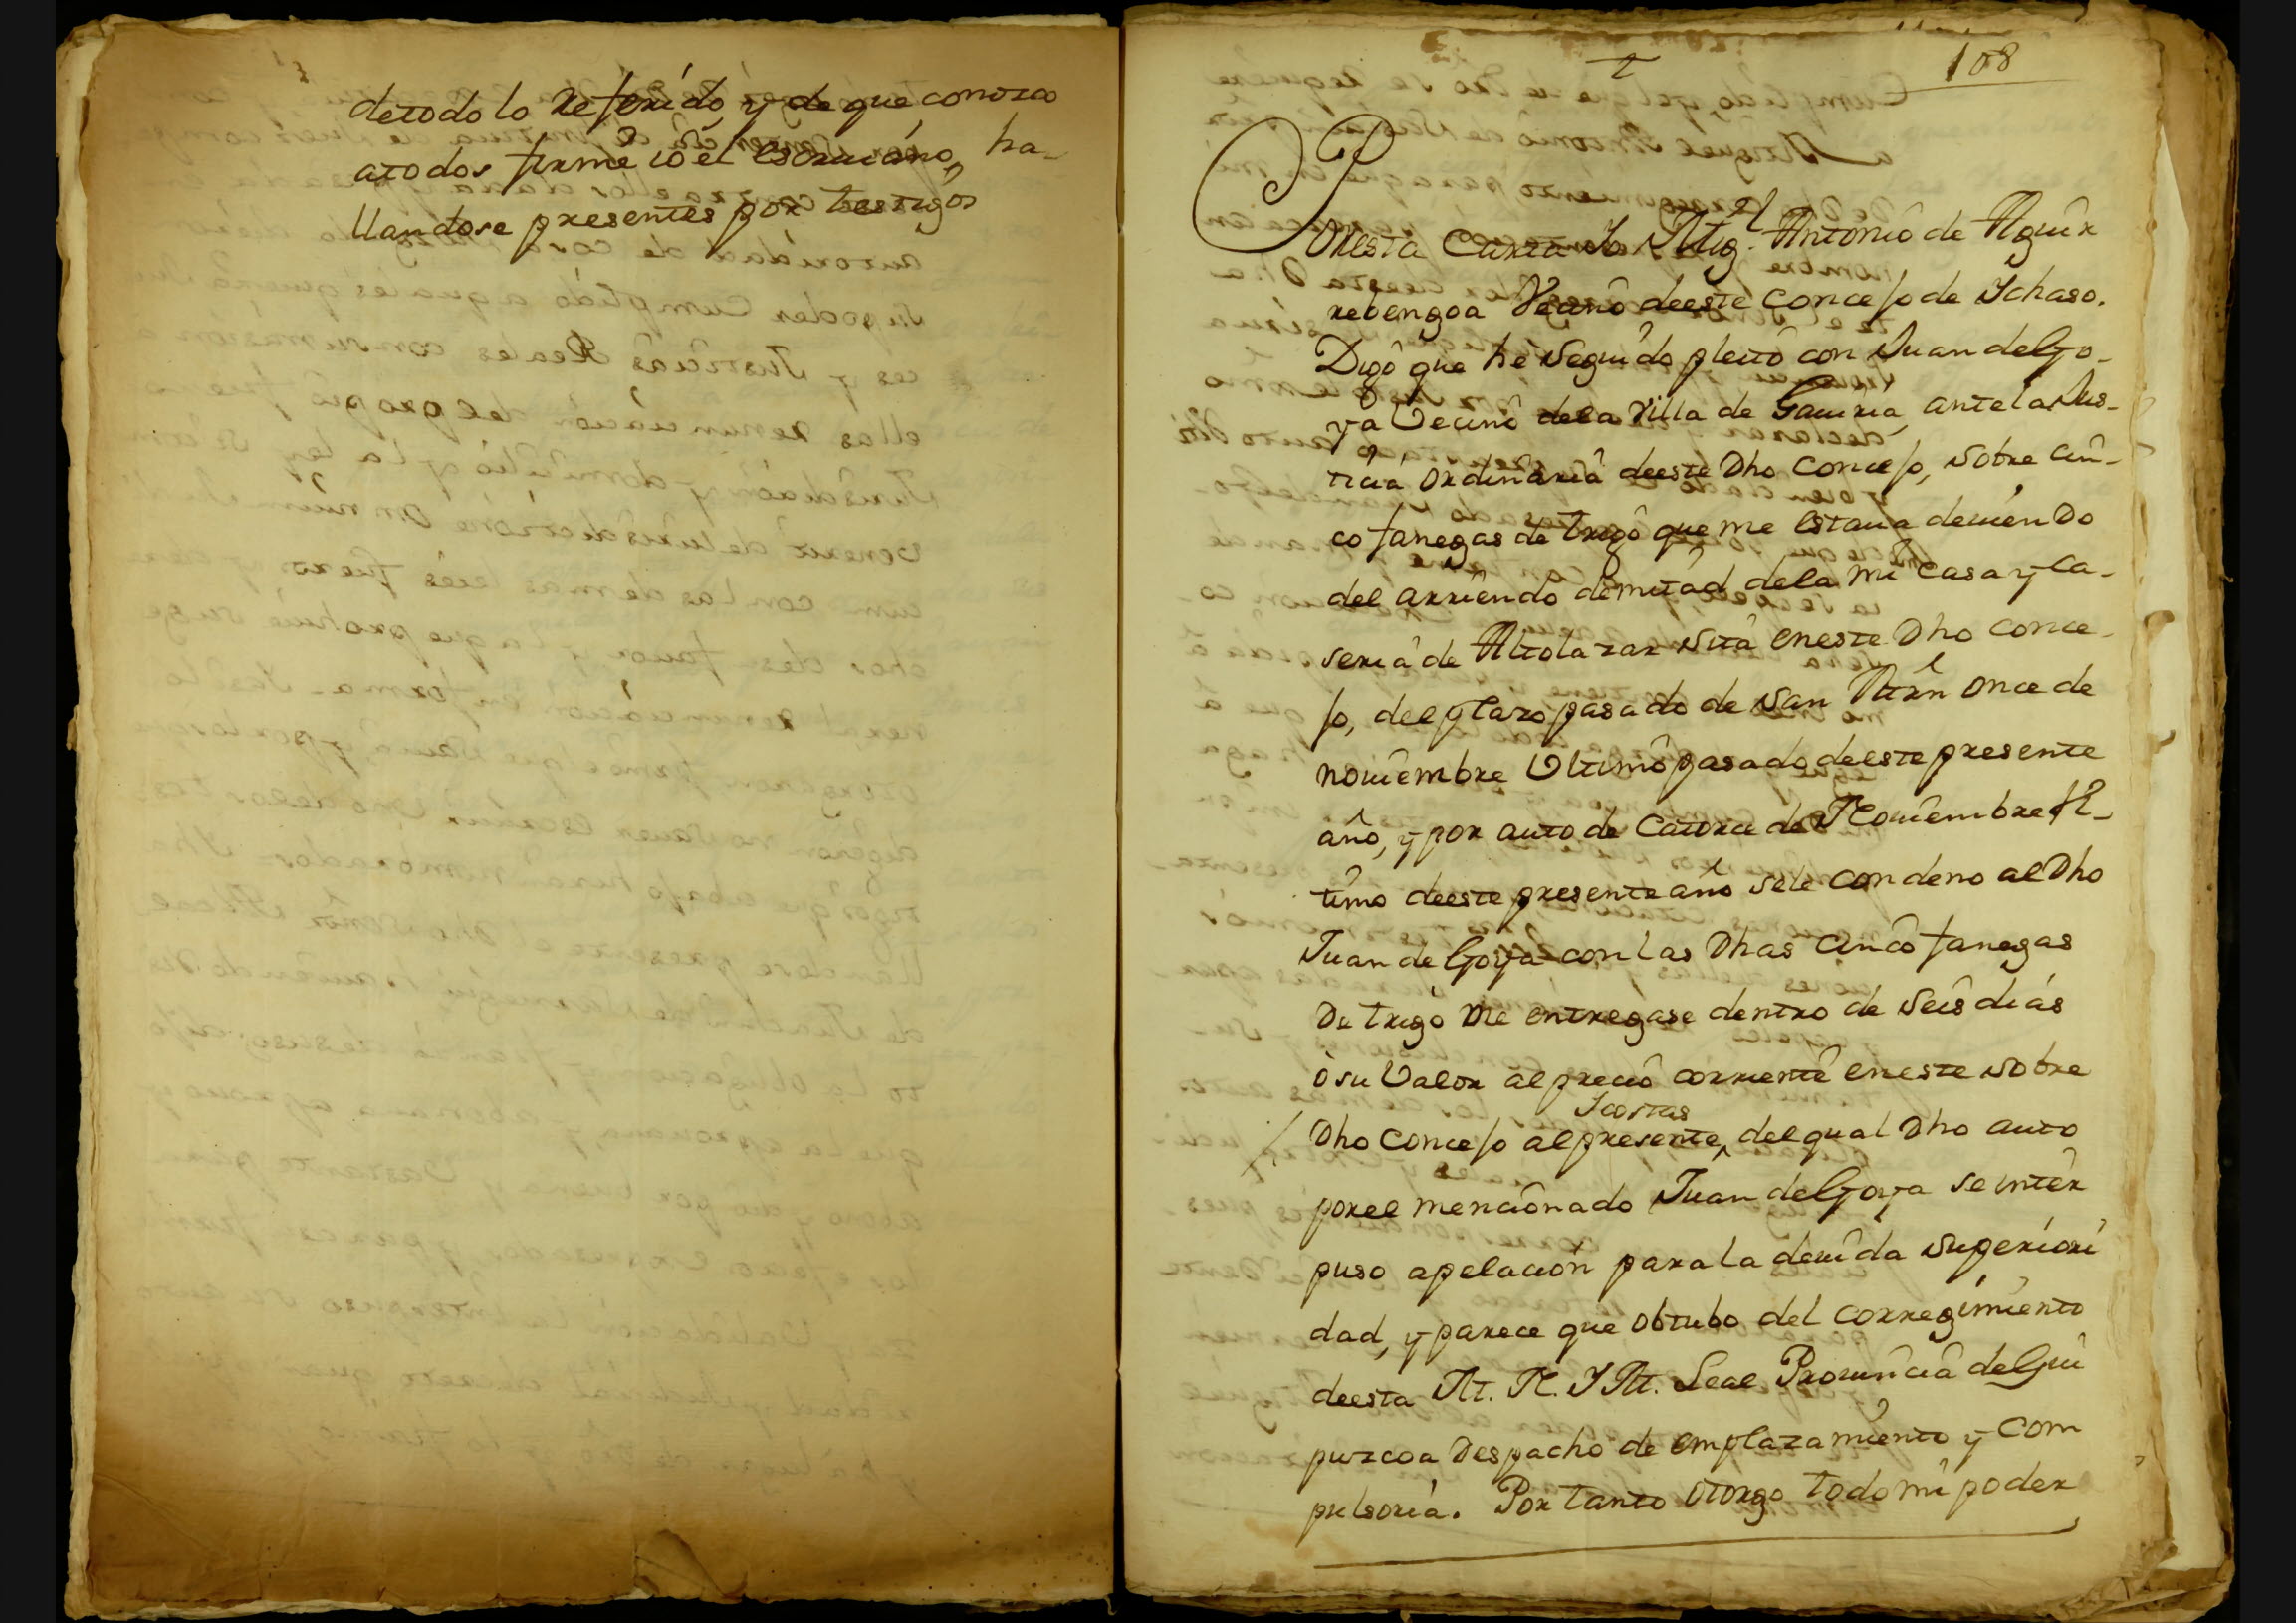 detodo lo Referido, y de que conozco
atodos firmé ió el escriuano, ha-
llandose presentes por testigos
108
Poresta Carta Yo Mig.l Antonio de Aguir
rebengoa Vecino deeste Concejo de Ichaso.
Digo que he Seguido pleito con Juan deGo-
ya Vecino dela Villa de Gauiria, antela Jus-
ticia Ordinaria deeste Dho Concejo, sobre Cin-
co fanegas de trigo que me estaua deuiendo
del arriendo demitad dela mi Casa y Ca-
seria de Altolazar sita eneste Dho Conce-
jo, del plazo pasado de San Mrn once de
nouiembre Vltimo pasado deeste presente
año, y por auto de Catorce de Nouiembre Vl-
timo deeste presente año sele condeno al Dho
Juan de Goya con las Dhas Cinco fanegas
De trigo me entregase dentro de Seis dias
ò su Valor al precio corriente eneste sobre
Ycostas
Dho Concejo al presente, del qual Dho auto
porel mencionado Juan deGoya se inter
puso apelacion parala deuida Superiori
dad, y parece que obtubo del Corregimiento
deesta M. N. Y M. Leal Prouincia deGui
puzcoa Despacho de emplazamiento y Com
pulsoria. Por tanto otorgo todo mi poder